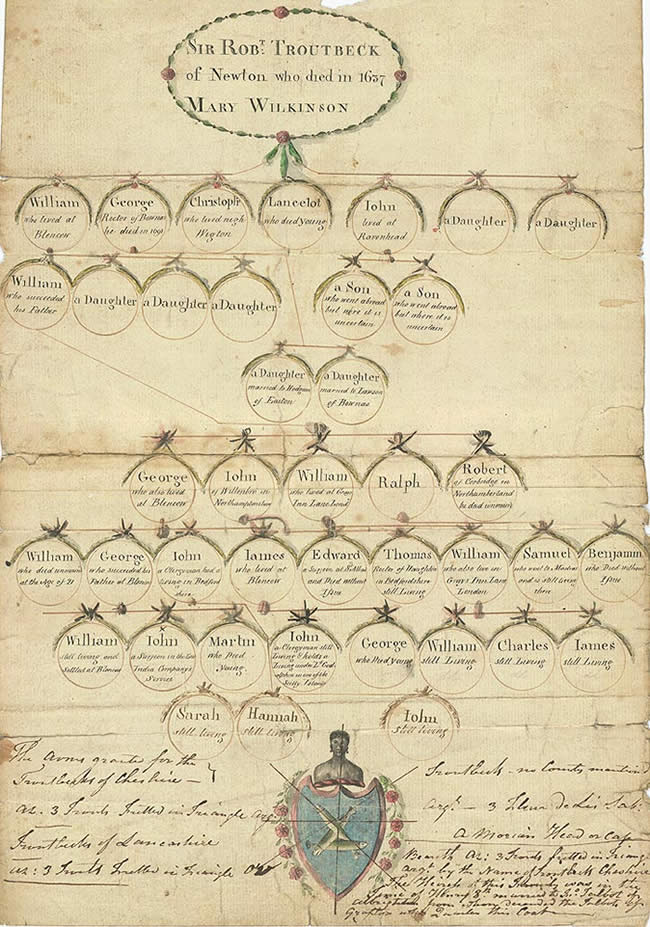 SIR ROBT. TROUTBECK
of Newton who died in 1637
MARY WILKINSON
William
who lived at
Blencow
George
Rector of Bownas
he died in 1691
Christopr
who lived nigh
Wigton
Lancelot
who died young
Iohn
lived at
Ravenhead
a Daughter
a Daughter
William
who succeeded
his Father
a Daughter
a Daughter
a Daughter
a Son
who went abroad
but where it is
uncertain
a Son
who went abroad
but where it is
uncertain
a Daughter
married to Hodgson
of Easton
a Daughter
married to Lawson
of Bownas
George
who also lived
at Blencow
Iohn
of Willenbro in
Northamptonshire
William
who lived at Grays
Inn Lane Lond
Ralph
Robert
of Corbridge in
Northumberland
he died unmarn
William
who died unmarn
at the Age of 21
George
who succeeded his
Father at Blencow
Iohn
a Clergyman had a
Living in Bedford
shire
Iames
who lived at
Blencow
Edward
a Surgeon at
and Died without
Issue
Thomas
Rector of
in Bedfordshire
still Living
William
who also live in
Grays Inn Lane
London
Samuel
who went to Madras
and is still living
there
Benjamin
who Died without
Issue
William
still living and
Settled at Blencow
Iohn
a Surgeon in the East
India Companys
Service
Martin
who Died
Young
Iohn
a Clergyman still
Living & holds a
Living under Ld God
olphin in one of the
Scilly Islands
George
who Died young
William
still Living
Charles
still Living
Iames
still Living
Sarah
still living
Hannah
still living
Iohn
still living
The Arms granted for the
Troutbecks of Cheshire —
az: 3 Trouts Fretted in Triangle Argt
Troutbecks of Lancashire
az: 3 Trouts Fretted in Triangle Or
Troutbeck - no County mentiond
Argt — 3 Fleur De Lis Sab:
A Morian Head or Cap
Beareth Az: 3 Trouts fretted in Triangle
arg: by the Name of Troutbeck Cheshire
The Heiress of this Family was in the
time of Henry 8th married to Jno Talbot of
Albrighton from whom descended the Talbots of
Grafton who Quarter this Coat